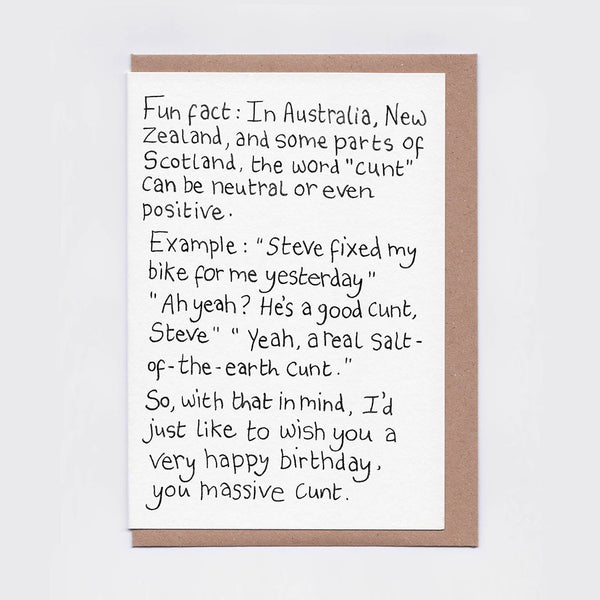 Fun fact: In Australia, New
Zealand, and some parts of
Scotland, the word "cunt"
can be neutral or even
positive.
Example: "Steve fixed my
bike for me yesterday"
"Ah yeah? He's a good cunt,
Steve" "Yeah, a real salt-
of-the-earth cunt."
So, with that in mind, I'd
just like to wish you a
very happy birthday,
you massive cunt.